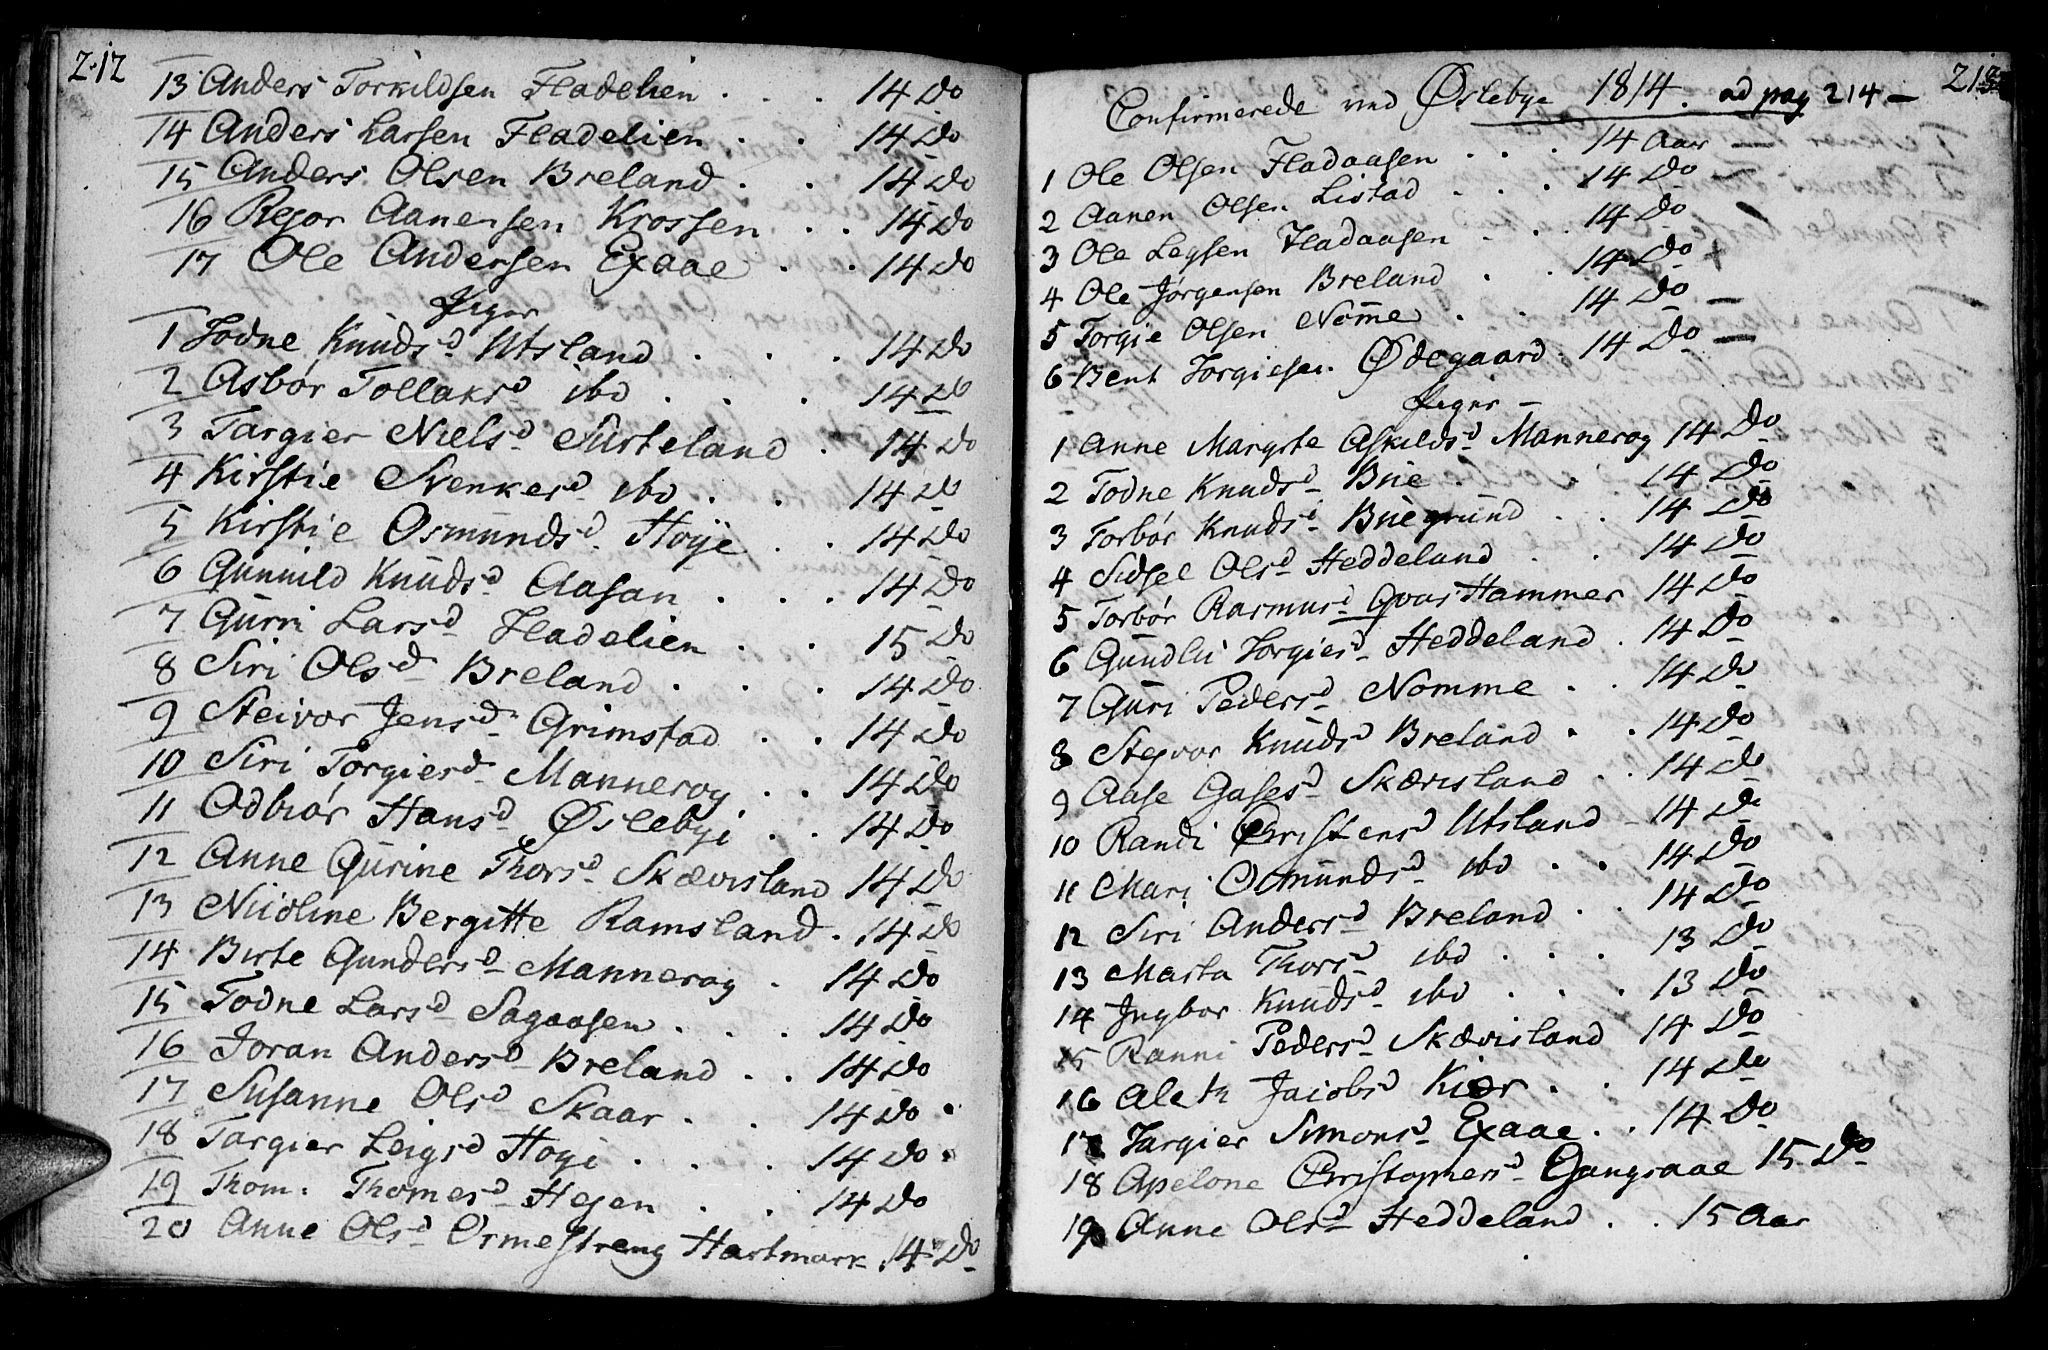 212
13 Anders Torkildsen Fladelien . . . 14 Do
14 Anders Larsen Fladelien . . 14 Do
15 Anders Olsen Breland . . 14 Do
16 Rejor Aanensen Krossen . . 14 Do
17 Ole Andersen Exaae . . 14 Do
Piger
1 Todne Knudsd Utsland . . . 14 Do
2 Asbør Tollaksd ibd . . . 14 Do
3 Targier Nielsd Surteland . 14 Do
4 Kirstie Svenkesd ibd . . 14 Do
5 Kirstie Osmundsd Høije . . 14 Do
6 Gunnild Knudsd Aasan . . . 14 Do
7 Gurri Larsd Fladelien . . 15 Do
8 Siri Olsd Breland . . . 14 Do
9 Steivor Jensd Grimstad . . 14 Do
10 Siri Torgiersd Mannerog . . 14 Do
11 Odbiør Hansd Øslebyi . . 14 Do
12 Anne Gurine Thorsd Skævisland 14 Do
13 Nicoline Bergitte Ramsland . 14 Do
14 Birte Gundersd Mannerog . 14 Do
15 Todne Larsd Sagaasen . . . 14 Do
16 Joran Andersd Breland . . 14 Do
17 Susanne Olsd Skaar . . 14 Do
18 Targier Leigsd Høyi . . . 14 Do
19 Thom. Thomesd Hejen . . 14 Do
20 Anne Olsd Ormestreng Hartmark . 14 Do
213
Confirmerede ved Øslebye 1814. ad pag 214 —
1 Ole Olsen Fladaasen . . . 14 Aar —
2 Aanen Olsen Listad . . . 14 Do —
3 Ole Leysen Fladaasen . . 14 Do
4 Ole Jørgensen Breland . . 14 Do
5 Torgie Olsen Nome . . 14 Do —
6 Bent Torgiesen Ødegaard . 14 Do —
Piger —
1 Anne Margrete Askildsd Mannerog 14 Do
2 Todne Knudsd Brie . . 14 Do
3 Torbør Knudsd Briegrund . . 14 Do
4 Sidsel Olsd Heddeland . . 14 Do
5 Torbør Rasmusd Qvas Hammer 14 Do
6 Gundlei Torgiersd Heddeland . 14 Do
7 Guri Pedersd Nomme . . 14 Do
8 Stejvor Knudsd Breland . . 14 Do
9 Aase Gasesd Skævisland . . 14 Do
10 Randi Christensd Utsland 14 Do
11 Mari Osmundsd ibd . . 14 Do
12 Siri Andersd Breland . . 14 Do
13 Marta Thorsd ibd . . . 13 Do
14 Jngbor Knudsd ibd . . . 13 Do
15 Ranni Pedersd Skævisland 14 Do
16 Aleth Jacobsd Kiær . . 14 Do
17 Targier Simonsd Exaae . . 14 Do
18 Apelone Christophersd Gangsaae 15 Do
19 Anne Olsd Heddeland . . 15 Aar